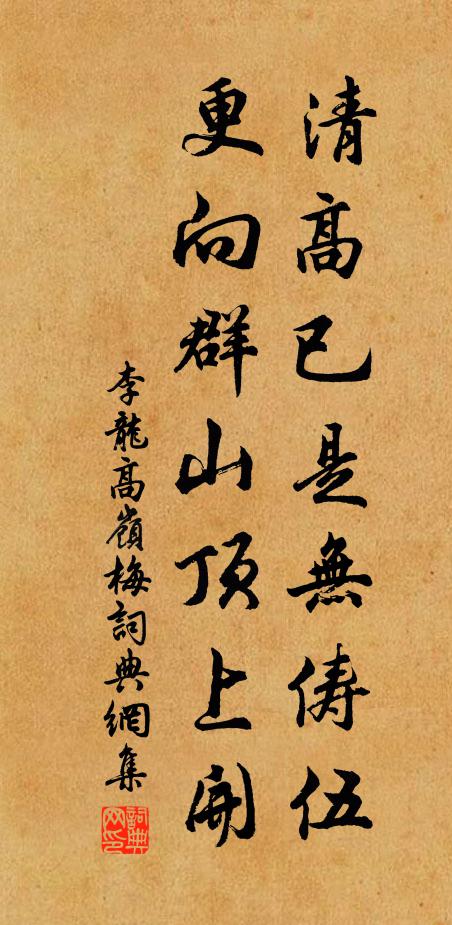 清高已是無儔伍
更向群山頂上開
李龍高嶺梅詞典網集
詞典网印